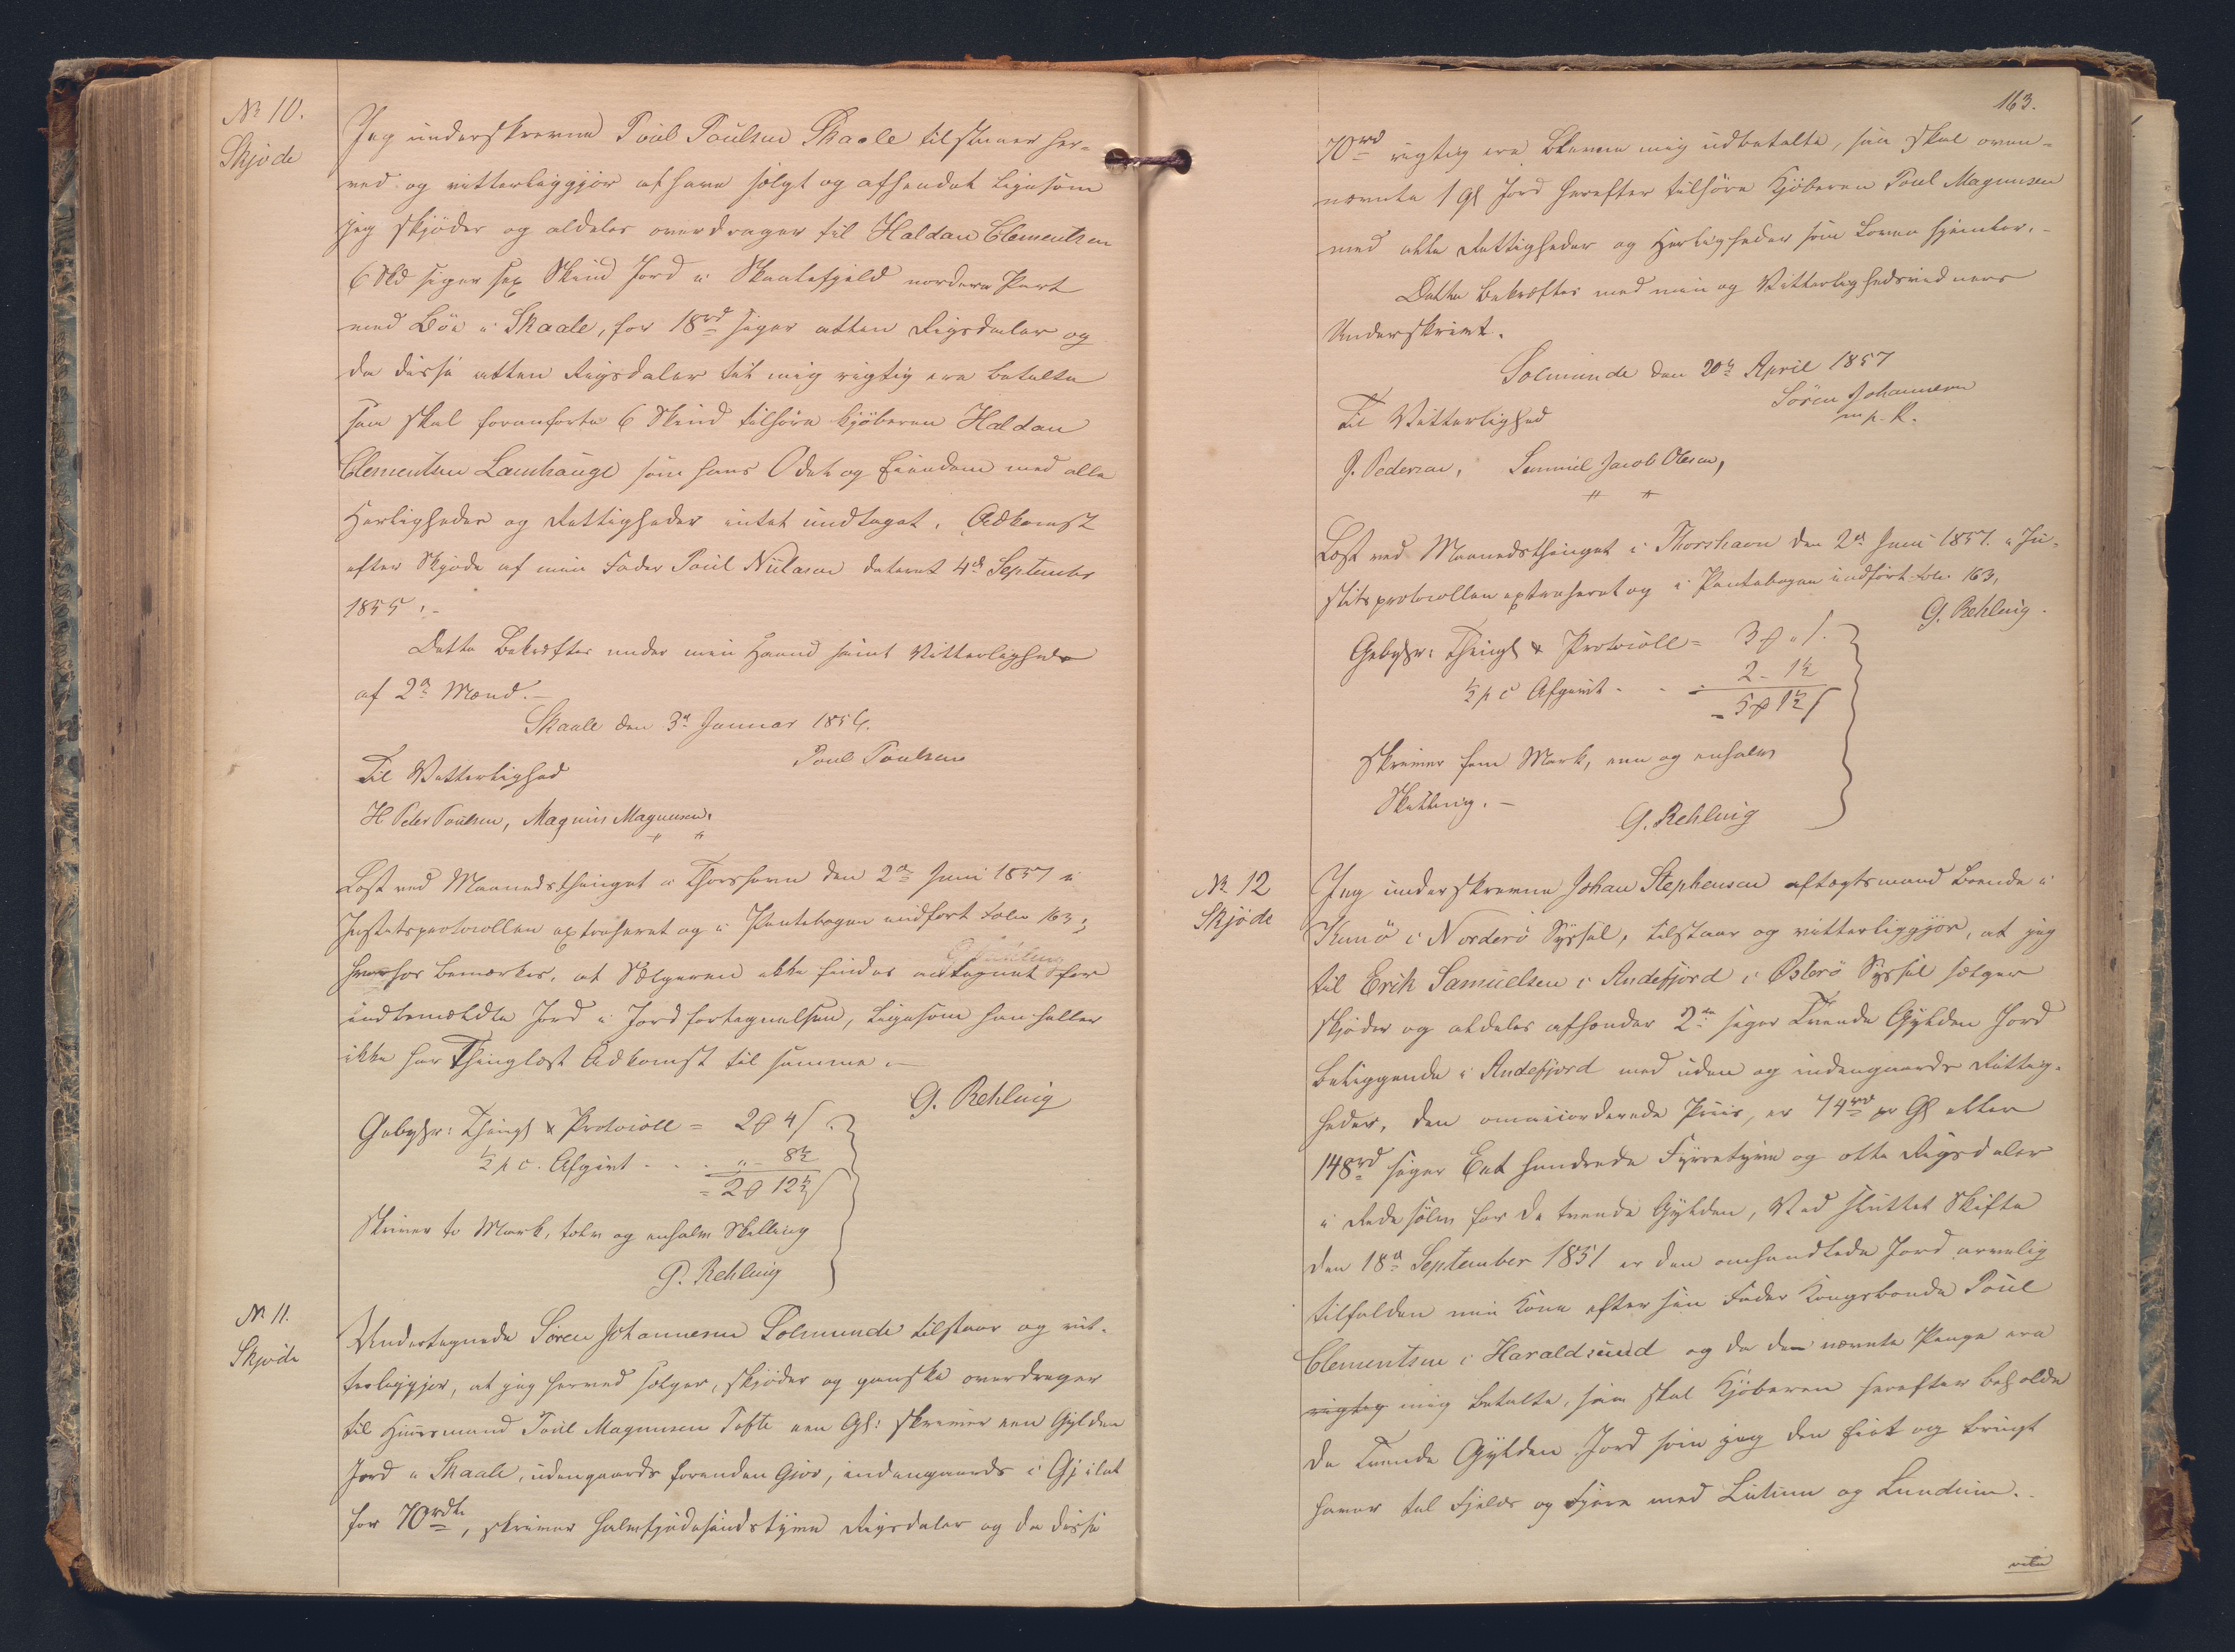 No 10.
Skjøde
Jeg underskrevne Poul Poulsen Skaale tilstaaer her-
ved og vitterliggjør at have solgt og afhendet ligesom
jeg skjøder og aldeles overdrager til Haldan Clementsen
6 Skd siger sex Skind Jord i Skaalefjeld nordere Part
med Böe i Skaale, for 18rd siger atten Rigsdaler og
da disse atten Rigsdaler til mig rigtig ere betalte
saa skal foranførte 6 Skind tilhøre kjøberen Haldan
Clementsen Lamhauge som hans Odel og Eiendom med alle
Herligheder og Rettigheder intet undtaget. Adkomst
efter Skjøde af min Fader Poul Nielsen dateret 4de September
1855.-
Dette bekræftes under min Haand samt Vitterligheds
af 2de Mænd.-
Skaale den 3d Januar 1856.
Poul Poulsen
Til Vitterlighed
H. Peter Poulsen, Magnus Magnusen.
Læst ved Maanedsthinget i Thorshavn den 2den Juni 1857 i
Justitsprotocollen extraheret og i Pantebogen indført Folio 163;
hvorhos bemærkes, at Sælgeren ikke findes antegnet for
indbemeldte Jord i Jordfortegnelsen, ligesom han heller
ikke har Thinglæst Adkomst til samme.-
G. Rehling
Gebyhr: Thingl & Protocoll = 2 4
½ p c. Afgivt - - - „- 8½
= 2 12½
Skriver to Mark, tolv og enhalv Skilling
G. Rehling
No 11.
Skjøde
Undertegnede Sören Johannesen Solmunde tilstaar og vit-
terliggjør, at jeg herved sælger, skjøder og ganske overdrager
til Huusmand Poul Magnusen Tofte een Gl: skriver een Gylden
Jord i Skaale, udengaards forenden Gjov, indengaards i Gjilet
for 70rdlr, skriver halvfjedesindstyve Rigsdaler og da disse
163.
70rd rigtig ere blevne mig udbetalte, saa skal oven-
nævnte 1 Gl Jord herefter tilhøre Kjøberen Poul Magnusen
med alle Rettigheder og Herligheder som Loven hjemler.-
Dette bekræftes med min og Vitterlighedsvidners
Underskrivt.
Solmunde den 20de April 1857
Sören Johannesen
m. p. P.
Til Vitterlighed
J. Pedersen, Samuel Jacob Olesen,
Læst ved Maanedsthinget i Thorshavn den 2d Juni 1857. i Ju-
stitsprotocollen extraheret og i Pantebogen indført Fol. 163.
G. Rehling.
Gebyhr: Thingl & Protocoll = 3 „
½ p c Afgivt - - 2 - 1½
= 5 1½
Skriver fem Mark, een og enhalv
Skilling.-
G. Rehling
No 12
Skjøde
Jeg underskrevne Johan Stephensen aftægtsmand boende i
Kunö i Norderö Syssel, tilstaar og vitterliggjør, at jeg
til Erik Samuelsen i Andefjord i Österö Syssel sælger
skjøder og aldeles afhænder 2de siger Tvende Gylden Jord
beliggende i Andefjord med uden og indengaards Rettig-
heder, den omaccorderede Priis, er 74rd pr Gl eller
148rd siger Eet hundrede Fyrretyve og otte Rigsdaler
i Rede sølv for de tvende Gylden, Ved sluttet Skifte
den 18d September 1851 er den omhandlede Jord arvelig
tilfalden min Kone efter sin Fader Kongsbonde Poul
Clementsen i Haraldsund og da de nævnte Penge ere
rigtig mig betalte, saa skal Kjøberen herefter beholde
de Tvende Gylden Jord som jeg den eiet og brugt
haver til Fjelds og Fjære med Lutum og Lundum.-